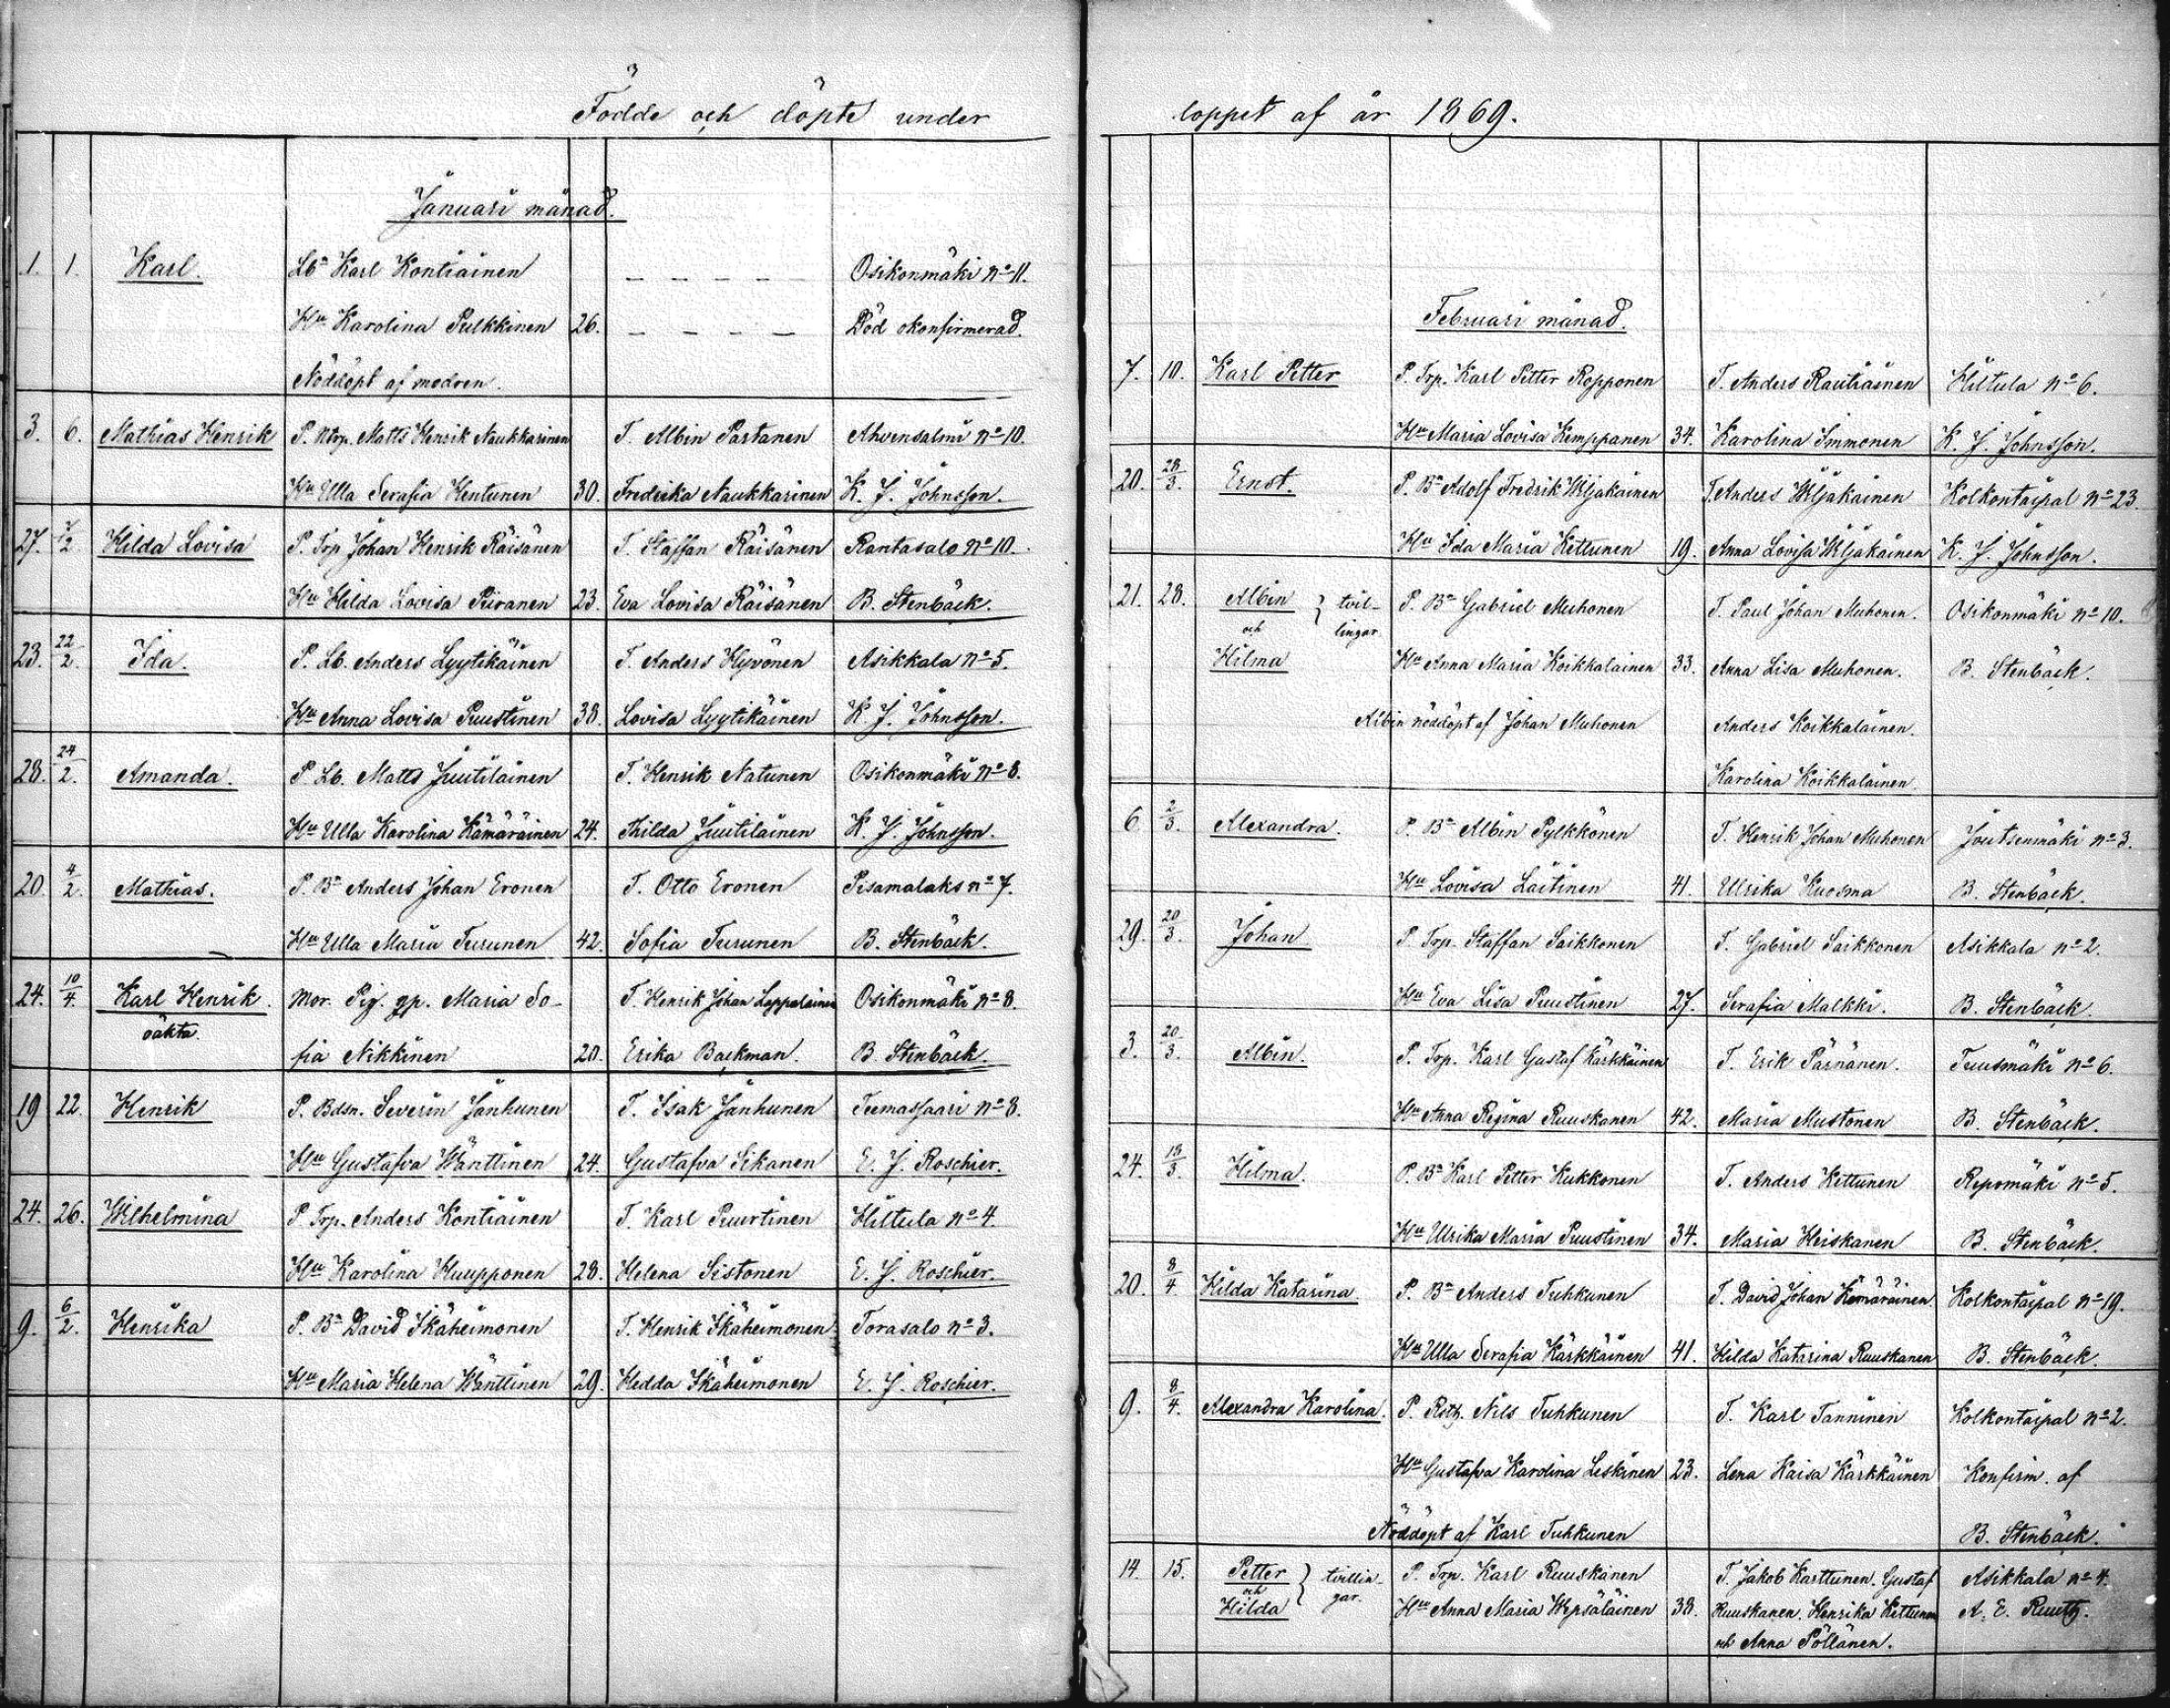 Födde och döpte under
Januari månad.
1. 1. Karl. Lb:n Karl Kontiainen - - - - - Osikonmäki No 11.
Hu Karolina Pulkkinen 26. - - - - Död okonfirmerad.
Nöddöpt af modren.
3. 6. Mathias Henrik P. Ntrp. Matts Henrik Naukkarinen T. Albin Partanen Ahvensalmi No 10.
Hu Ulla Serafia Hentunen 30. Fredrika Naukkarinen K. J. Johnsson.
27. 7/2 Hilda Lovisa P. Trp Johan Henrik Räisänen T. Staffan Räisänen Rantasalo No 10.
Hu Hilda Lovisa Piiranen 23. Eva Lovisa Räisänen B. Stenbäck.
23. 22/2. Ida. P. Lb. Anders Lyytikäinen T. Anders Hyvönen Asikkala No 5.
Hu Anna Lovisa Puustinen 38. Lovisa Lyytikäinen K. J. Johnsson.
28. 24/2. Amanda. P. Lb. Matts Juutilainen T. Henrik Natunen Osikonmäki No 8.
Hu Ulla Karolina Kämäräinen 24. Thilda Juutilainen K. J. Johnsson.
20. 4/2. Mathias. P. Bn Anders Johan Eronen T. Otto Eronen Pisamalaks No 7.
Hu Ulla Maria Turunen 42. Sofia Turunen B. Stenbäck.
24. 10/4. Karl Henrik. Mor. Pig. gp. Maria So- T. Henrik Johan Lappalainen Osikonmäki No 8.
oäkta. fia Nikkinen 20. Erika Backman. B. Stenbäck.
19 22. Henrik P. Bdsn. Severin Janhunen T. Isak Janhunen Teemassaari No 8.
Hu Gustafva Wänttinen 24. Gustafva Sikanen E. J. Roschier.
24. 26. Wilhelmina P. Trp. Anders Kontiainen T. Karl Puurtinen Hiltula No 4.
Hu Karolina Kuupponen 28. Helena Sistonen E. J. Roschier.
9. 6/2. Henrika P. Bn David Ikäheimonen T. Henrik Ikäheimonen Torasalo No 3.
Hu Maria Helena Wänttinen 29. Hedda Ikäheimonen E. J. Roschier.
loppet af år 1869.
Februari månad.
7. 10. Karl Petter P. Trp. Karl Petter Ropponen T. Anders Rautiainen Hiltula No 6.
Hu Maria Lovisa Kemppanen 34. Karolina Immonen K. J. Johnsson.
20. 28/3. Ernst. P. Bn Adolf Fredrik Wiljakainen T. Anders Wiljakainen Kolkontaipal No 23.
Hu Ida Maria Kettunen 19. Anna Lovisa Wiljakainen K. J. Johnsson.
21. 28. Albin } tvil- P. Bn Gabriel Muhonen T. Paul Johan Muhonen. Osikonmäki No 10.
och lingar
Hilma Hu Anna Maria Koikkalainen 33. Anna Lisa Muhonen. B. Stenbäck.
Albin nöddöpt af Johan Muhonen Anders Koikkalainen.
Karolina Koikkalainen.
6 2/3. Alexandra. P. Bn Albin Pylkkönen T. Henrik Johan Muhonen Joutsenmäki No 3.
Hu Lovisa Laitinen 41. Ulrika Kuosma B. Stenbäck.
29. 20/3. Johan P. Trp. Staffan Saikkonen T. Gabriel Saikkonen Asikkala No 2.
Hu Eva Lisa Puustinen 27. Serafia Malkki. B. Stenbäck.
3. 20/3. Albin. P. Trp. Karl Gustaf Kärkkäinen T. Erik Pärnänen. Tuusmäki No 6.
Hu Anna Regina Ruuskanen 42. Maria Mustonen B. Stenbäck.
24. 13/3. Hilma. P. Bn Karl Petter Kukkonen T. Anders Kettunen Repomäki No 5.
Hu Ulrika Maria Puustinen 34. Maria Heiskanen B. Stenbäck.
20. 8/4. Hilda Katarina. P. Bn Anders Tuhkunen T. David Johan Kämäräinen. Kolkontaipal No 19.
Hu Ulla Serafia Kärkkäinen 41. Hilda Katarina Ruuskanen B. Stenbäck.
9. 8/4. Alexandra Karolina. P. Rstg. Nils Tuhkunen T. Karl Tanninen Kolkontaipal No 2.
Hu Gustafva Karolina Leskinen 23. Lena Kaisa Kärkkäinen Konfirm. af
Nöddöpt af Karl Tuhkunen B. Stenbäck.
14. 15. Petter } tvillin- P. Trp. Karl Ruuskanen T. Jakob Karttunen. Gustaf Asikkala No 4.
och gar.
Hilda Hu Anna Maria Wepsäläinen 38. Ruuskanen. Henrika Kettunen A. E. Ruuth.
och Anna Pöllänen.